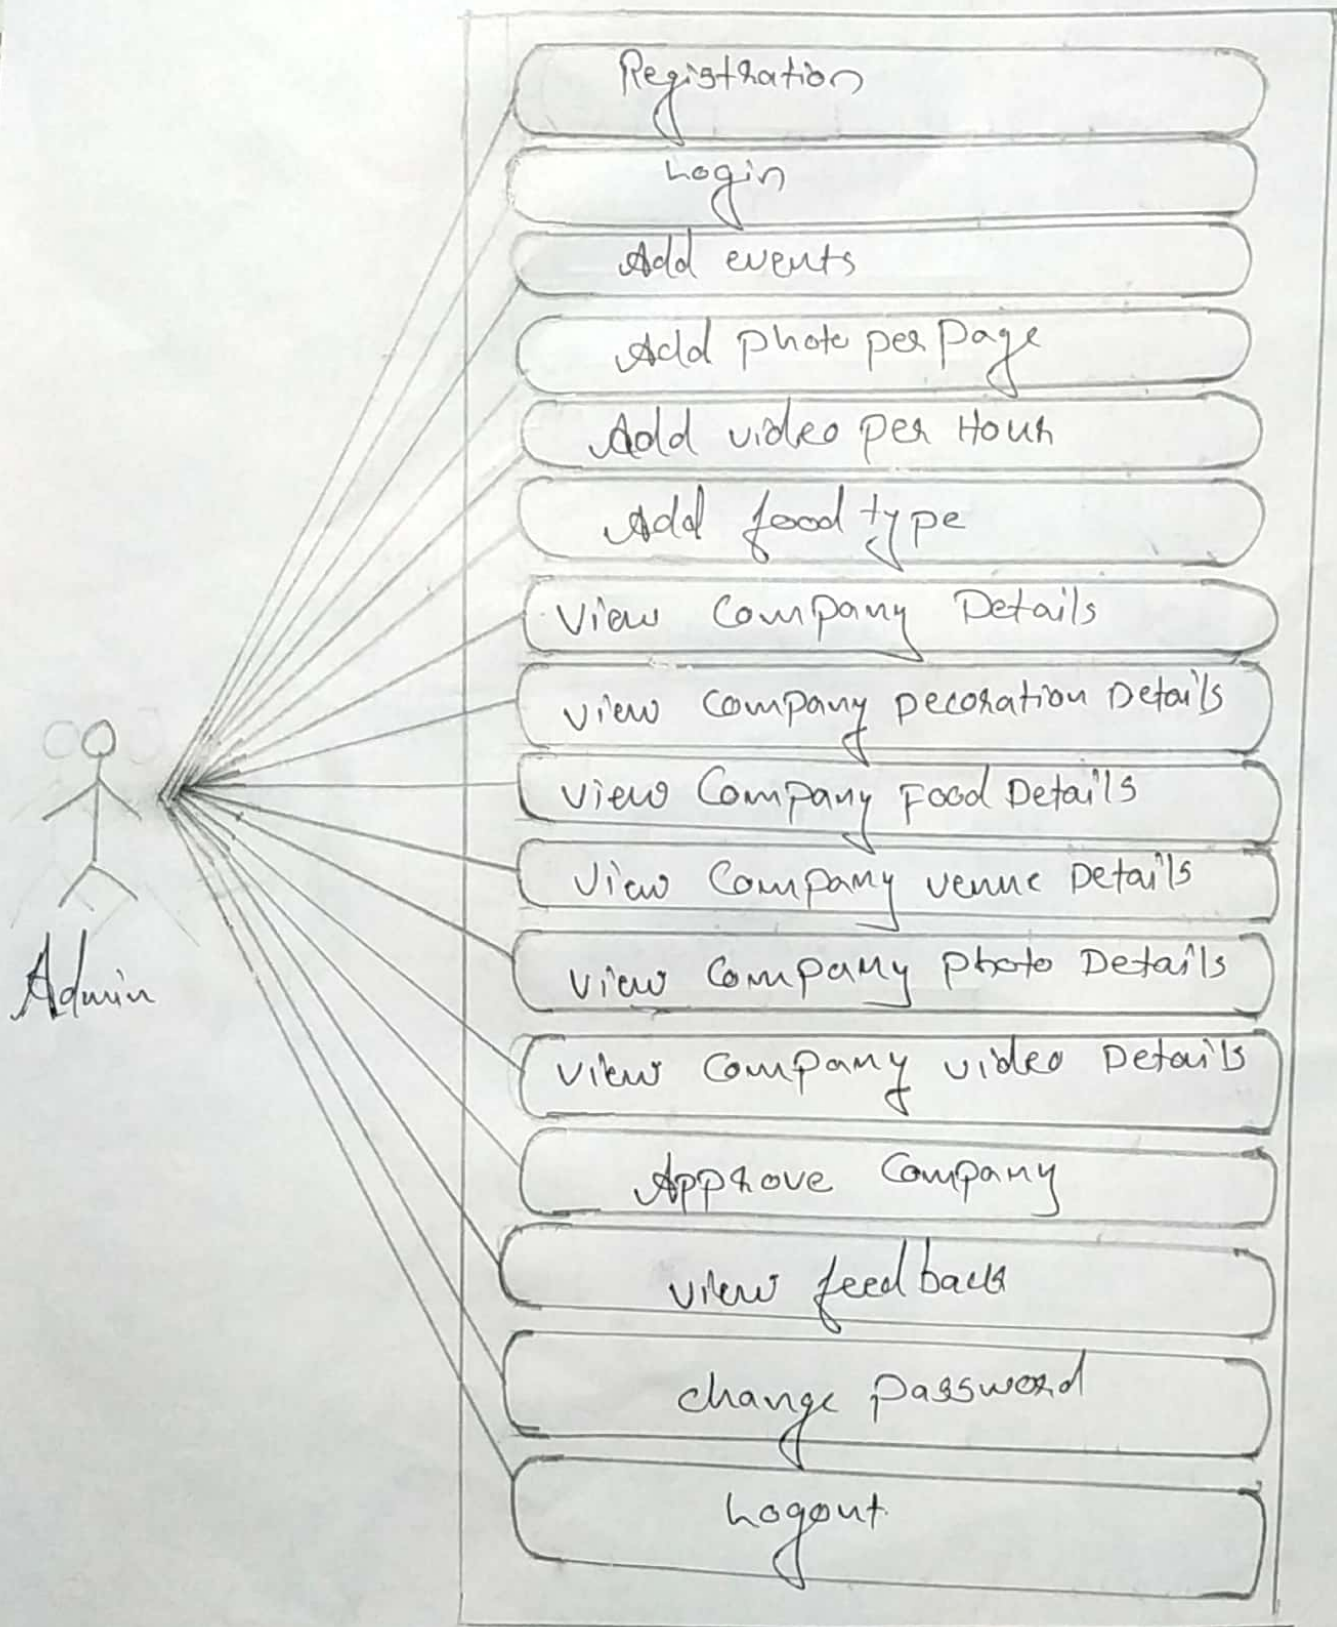 Registration
Login
Add events
Add photo per page
Add video per Hour
Add food type
View Company Details
view Company Decoration Details
view Company Food Details
View Company venue Details
view Company photo Details
view Company video Details
Approve Company
view feedback
change password
Logout
Admin